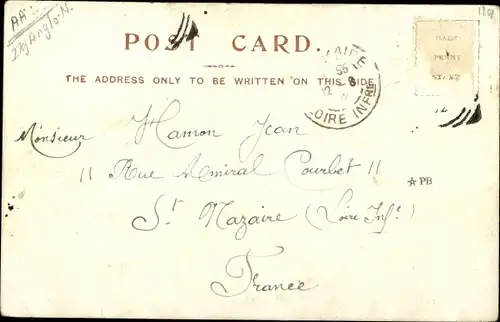 AA
POST CARD.
THE ADDRESS ONLY TO BE WRITTEN ON THIS SIDE
HALF
PENNY
STAMP
OIRE INFRE
Monsieur Hamon Jean
11 Rue Amiral Courbet 11
☆PB
St Nazaire (Loire Infe)
France